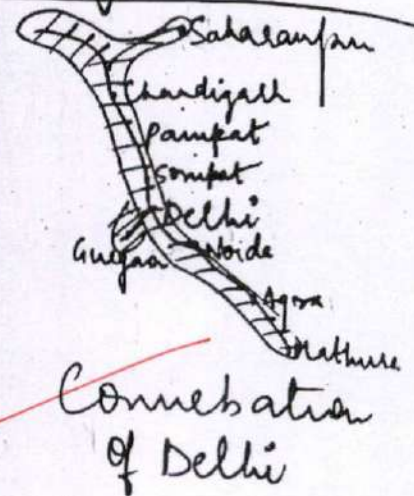 Saharanpur
Chandigarh
Panipat
Sonipat
Delhi
Gurgaon
Noida
Agra
Mathura
Connubation
of Delhi